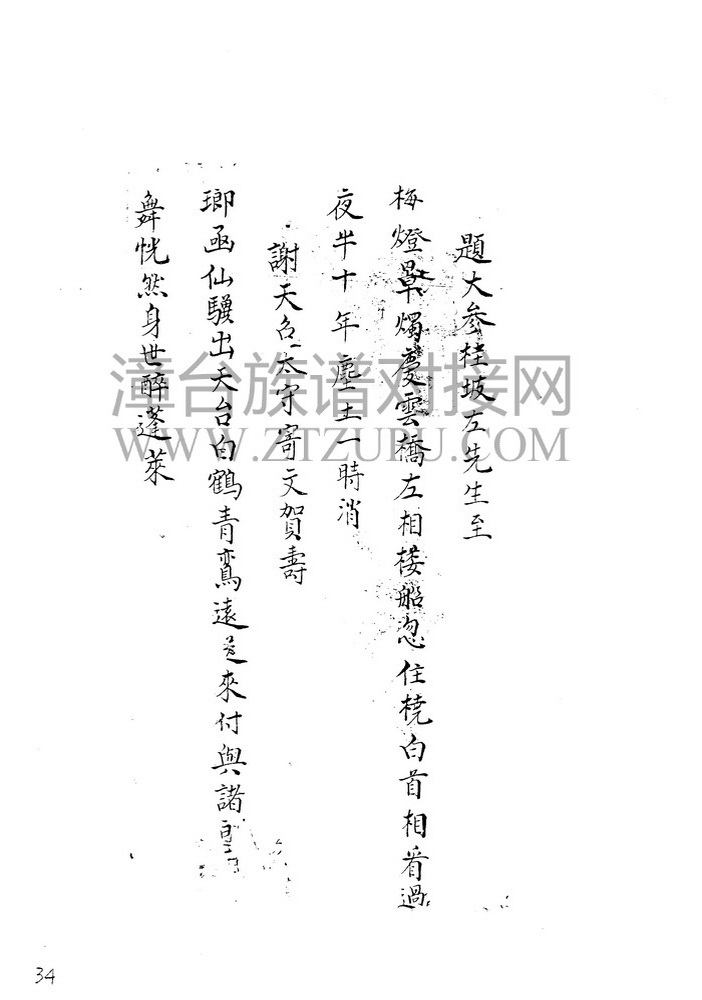 題大參桂坡左先生至
梅燈畢燭慶雲橋左相楼船忽住橈白首相看過
夜半十年塵土一時消
謝天台太守寄文賀壽
瑯函仙驥出天台白鶴青鸞遠遠來付與諸
舞恍然身世醉蓬萊
漳台族谱对接网
WWW.ZTZUPU.COM
34